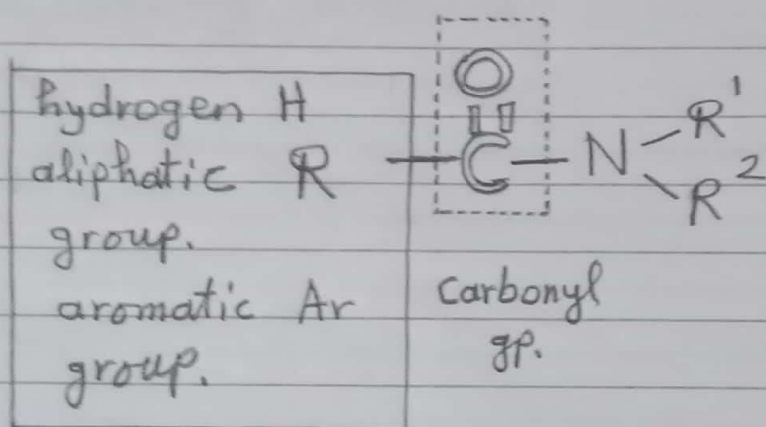 hydrogen H
aliphatic R
group.
aromatic Ar
group.
O
C N R¹
R²
Carbonyl
gp.